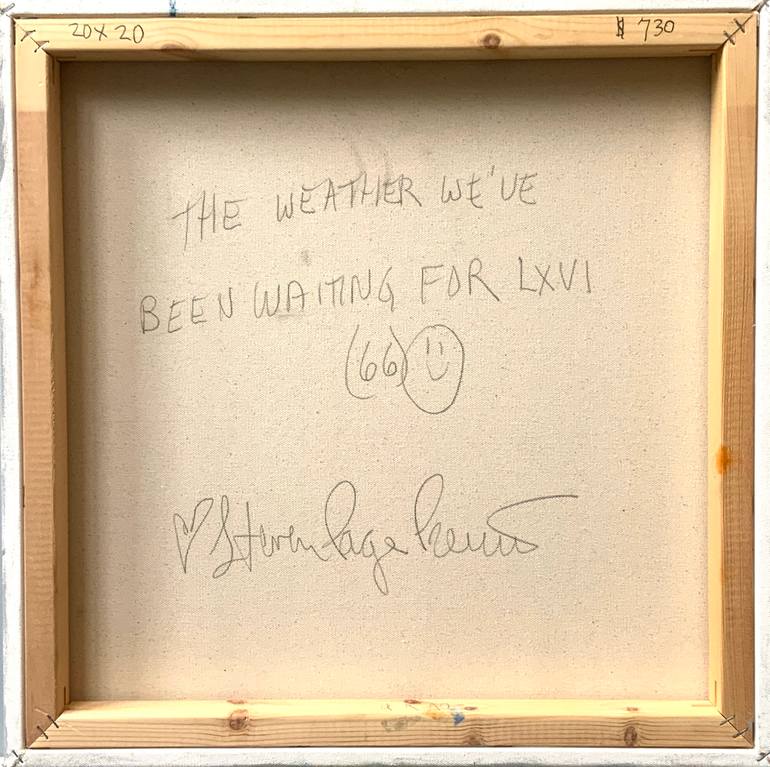 20X20 $ 730
THE WEATHER WE'VE
BEEN WAITING FOR LXVI
(66)
Steven Page Prewitt